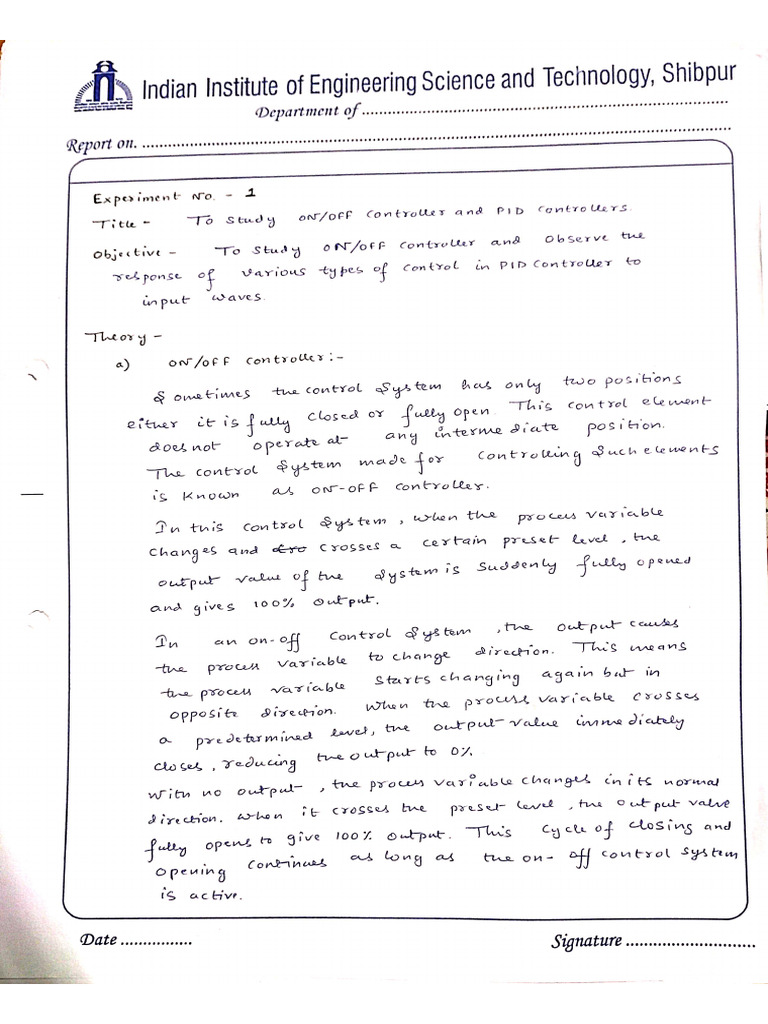 Indian Institute of Engineering Science and Technology, Shibpur
Department of
Report on.
Experiment No. - 1
Title - To Study ON/OFF Controller and PID Controllers.
Objective - To Study ON/OFF Controller and Observe the
response of various types of control in PID Controller to
input waves.
Theory -
a) ON/OFF Controller:-
Sometimes the control System has only two positions
either it is fully closed or fully open. This control element
does not operate at any intermediate position.
The control System made for controlling Such elements
is known as ON-OFF controller.
In this control System, when the process variable
changes and cro crosses a certain preset level, the
output value of the System is Suddenly fully opened
and gives 100% output.
In an on-off Control System, the output causes
the process variable to change direction. This means
the process variable starts changing again but in
opposite direction. When the process variable crosses
a predetermined level, the output value immediately
closes, reducing the output to 0%.
With no output, the process variable changes in its normal
direction. When it crosses the preset level, the output valve
fully opens to give 100% output. This Cycle of closing and
opening continues as long as the on-off control system
is active.
Date
Signature